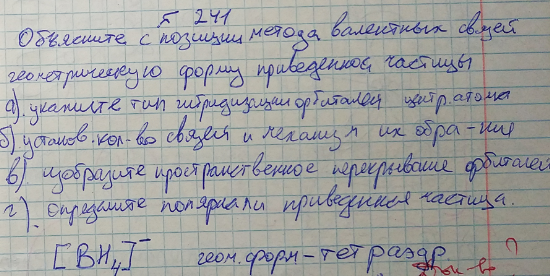 № 241
Объясните с позиции метода валентных связей
геометрическую форму приведенной частицы
а). укажите тип гибридизации орбиталей центр. атома
б) установ. кол-во связей и механизм их обра-ния
в) изобразите пространственное перекрывание орбиталей
г). определите полярна ли приведенная частица.
[BH4]⁻ геом. форм - тетраэдр ?